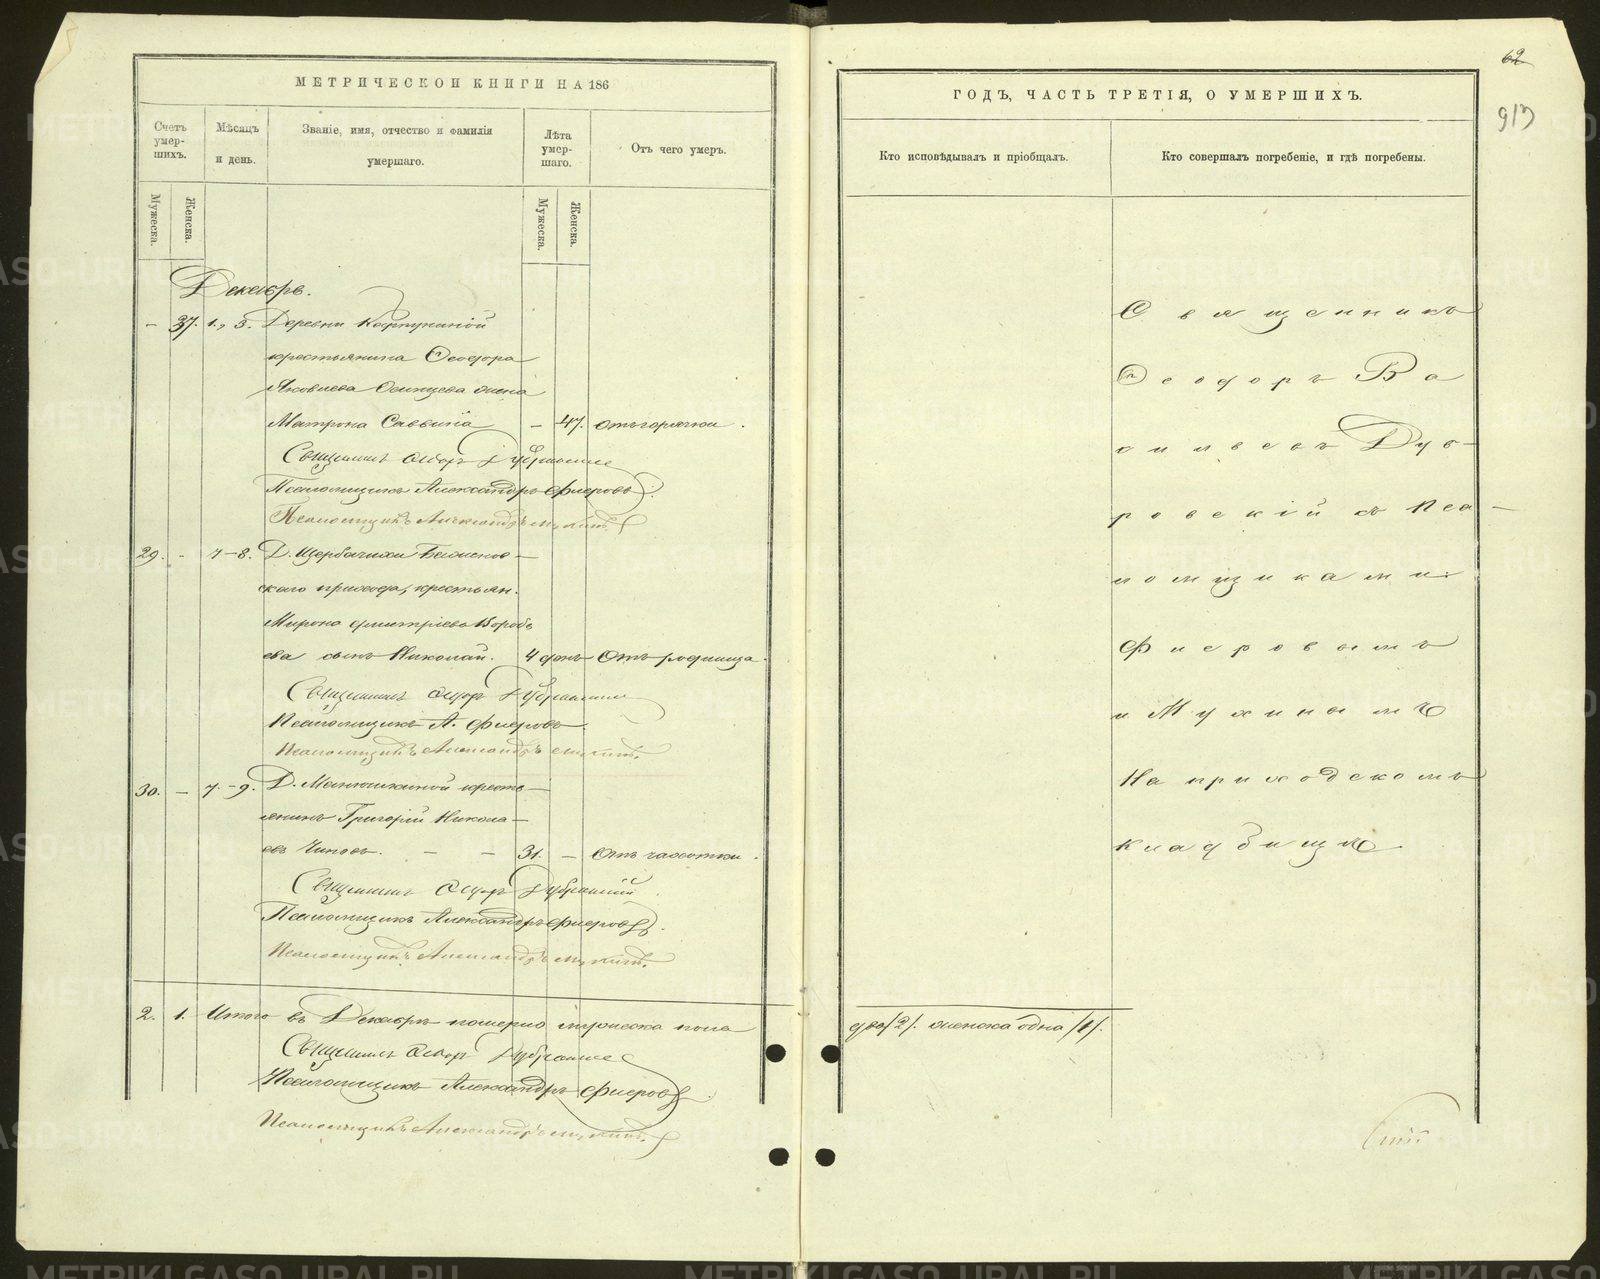 МЕТРИЧЕСКОЙ КНИГИ НА 186
Счетъ умер-шихъ.
Мѣсяцъ и день.
Званіе, имя, отчество и фамилія умершаго.
Лѣта умер-шаго.
Отъ чего умеръ.
Мужеска.
Женска.
Мужеска.
Женска.
Декабрь.
– 37. 1., 3. Деревни
крестьянина Ѳеодора
Яковлева Осинцева жена
Матрона Саввина – 47. отъ горячки.
Священникъ Ѳеодоръ Дубровскій
Псаломщикъ Александръ Фигровъ
Псаломщикъ Александръ Мухинъ.
29. - 7–8. Д. Щербачихи
скаго прихода, крестьян.
Мирона Дмитріева Вороб
ева сынъ Николай. 4 дня Отъ родимца.
Священникъ Ѳеодоръ Дубровскій
Псаломщикъ А. Фигровъ.
Псаломщикъ Александръ Мухинъ.
30. – 7.–9. Д. Матюшкиной кресть–
янинъ Григорій Никола–
евъ – – 31. – Отъ чахотки.
Священникъ Ѳеодоръ Дубровскій
Псаломщикъ Александръ Фигровъ.
Псаломщикъ Александръ Мухинъ.
2. 1. Итого въ Декабрѣ померло мужеска пола
Священникъ Ѳеодоръ Дубровскій
Псаломщикъ Александръ Фигровъ.
Псаломщикъ Александръ Мухинъ.
62
913
ГОДЪ, ЧАСТЬ ТРЕТІЯ, О УМЕРШИХЪ.
Кто исповѣдывалъ и пріобщалъ.
Кто совершалъ погребеніе, и гдѣ погребены.
Священникъ
Ѳеодоръ Ва
сильевъ Дуб–
ровскій съ Пса–
ломщиками:
Фигровымъ
и Мухинымъ
На приходскомъ
кладбищѣ.
два /2/. женска одна /1/.
METRIKI.GASO-URAL.RU